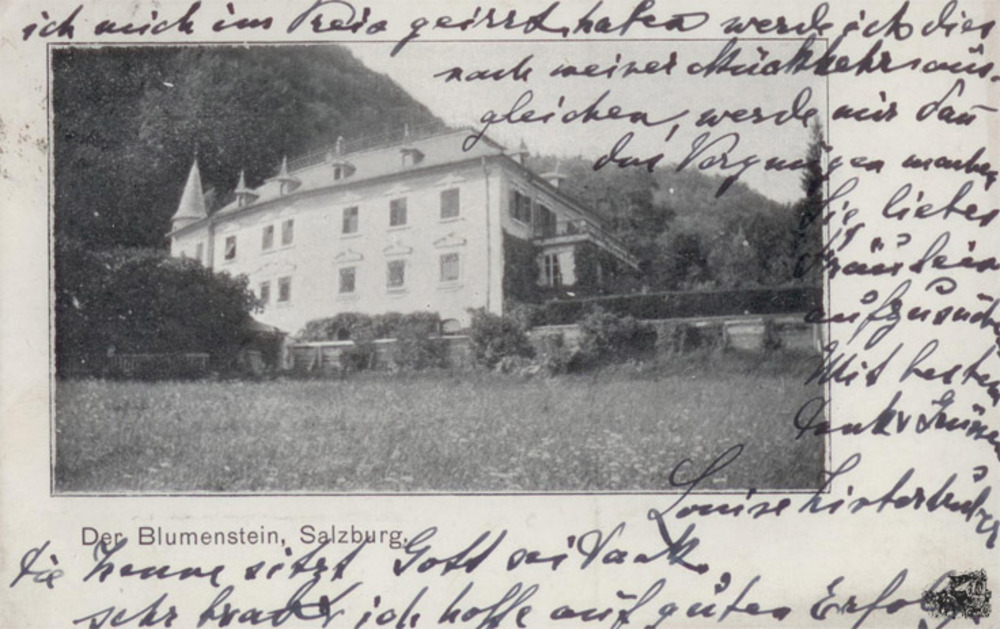 ich mich im Preis geirrt haben werde ich dies
nach meiner Rückkehr aus-
gleichen, werde mir dan
das Vergnügen machen
Sie, liebes
Fräulein
aufzusuch
Mit besten
Dank u Grüssen
Louise
Der Blumenstein, Salzburg.
Die Henne sitzt Gott sei Dank,
sehr brav ich hoffe auf guten Erfolg